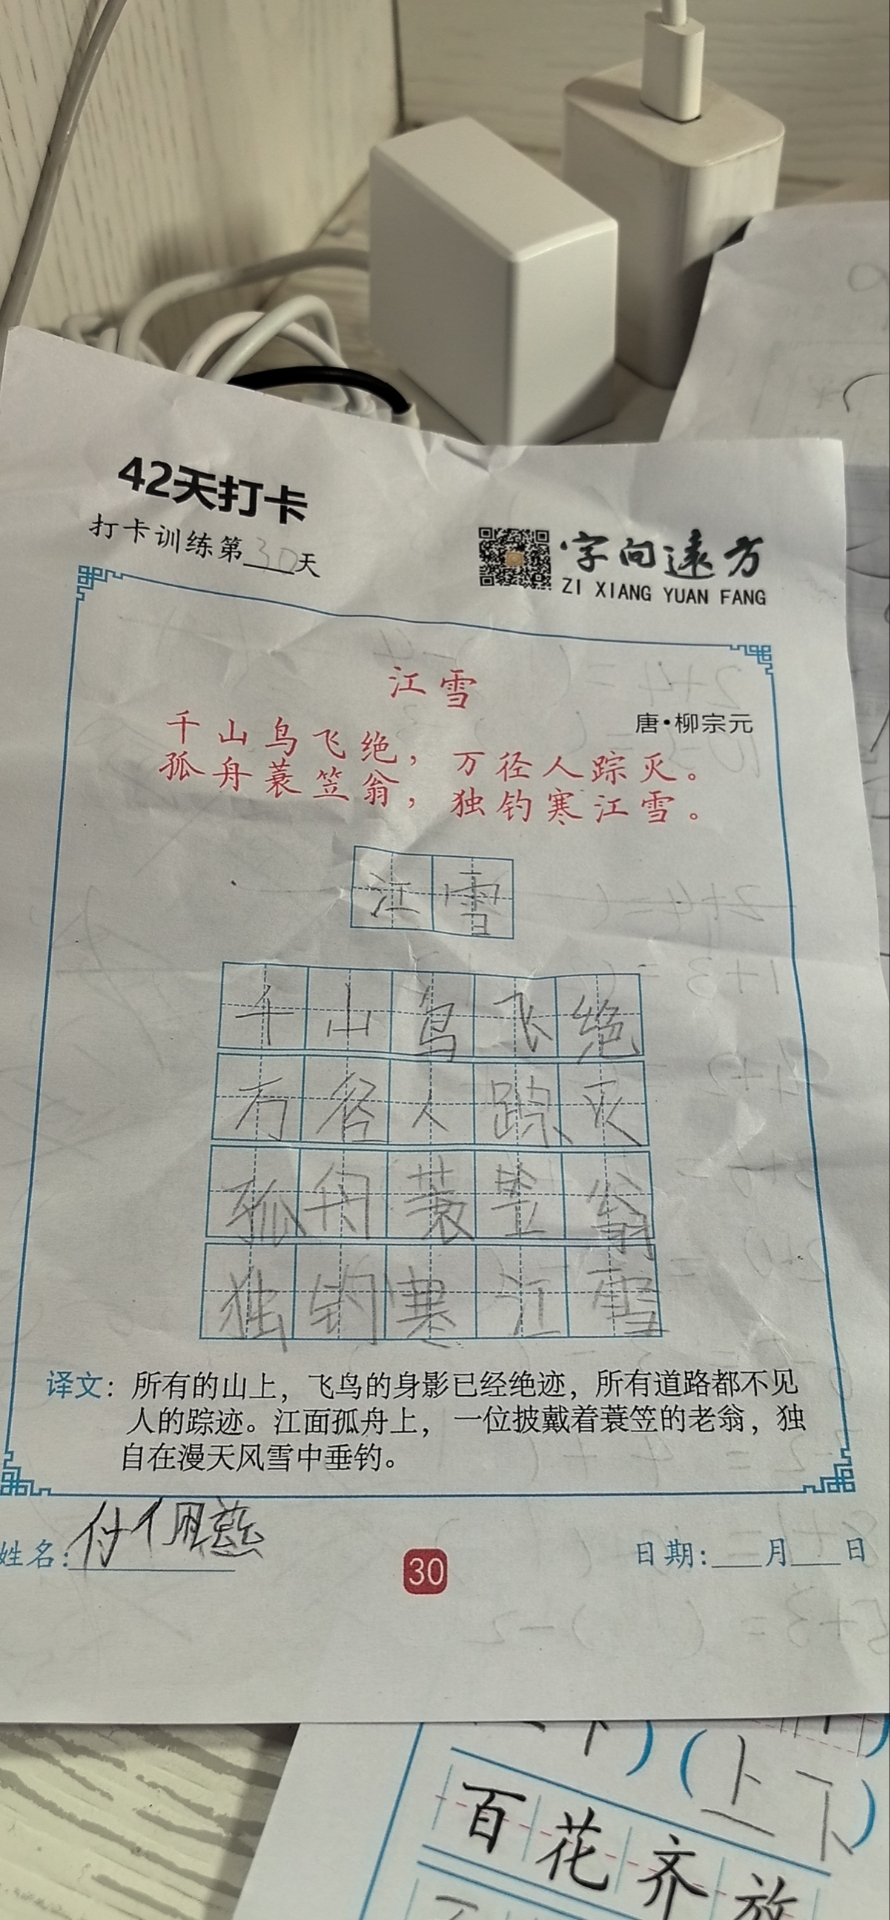 42天打卡
打卡训练第30天
字向遠方
ZI XIANG YUAN FANG
江雪
唐·柳宗元
千山鸟飞绝，万径人踪灭。
孤舟蓑笠翁，独钓寒江雪。
江雪
千山鸟飞绝
万径人踪灭
孤舟蓑笠翁
独钓寒江雪
译文：所有的山上，飞鸟的身影已经绝迹，所有道路都不见
人的踪迹。江面孤舟上，一位披戴着蓑笠的老翁，独
自在漫天风雪中垂钓。
姓名：付佩慈
30
日期：___月___日
(上下)
百花齐放